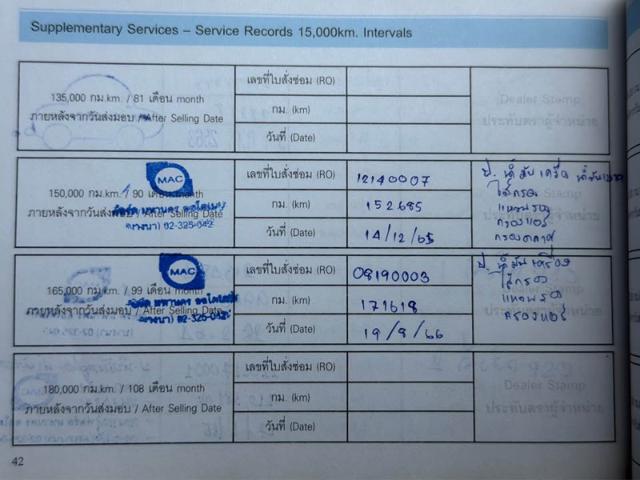 Supplementary Services – Service Records 15,000km. Intervals
135,000 กม.km. / 81 เดือน month
ภายหลังจากวันส่งมอบ / After Selling Date
เลขที่ใบสั่งซ่อม (RO)
กม. (km)
วันที่ (Date)
Dealer Stamp
ประทับตราผู้จำหน่าย
150,000 กม.km. / 90 เดือน month
ภายหลังจากวันส่งมอบ / After Selling Date
MAC
02-325-042
เลขที่ใบสั่งซ่อม (RO) 12140007
กม. (km) 152685
วันที่ (Date) 14/12/65
ไส้กรอง
แหวนรอง
กรองแอร์
กรองอากาศ
165,000 กม.km. / 99 เดือน month
ภายหลังจากวันส่งมอบ / After Selling Date
MAC
02-325-042
เลขที่ใบสั่งซ่อม (RO) 08190003
กม. (km) 171618
วันที่ (Date) 19/8/66
ป. น้ำมันเครื่อง
ไส้กรอง
แหวนรอง
กรองแอร์
180,000 กม.km. / 108 เดือน month
ภายหลังจากวันส่งมอบ / After Selling Date
เลขที่ใบสั่งซ่อม (RO)
กม. (km)
วันที่ (Date)
Dealer Stamp
ประทับตราผู้จำหน่าย
42